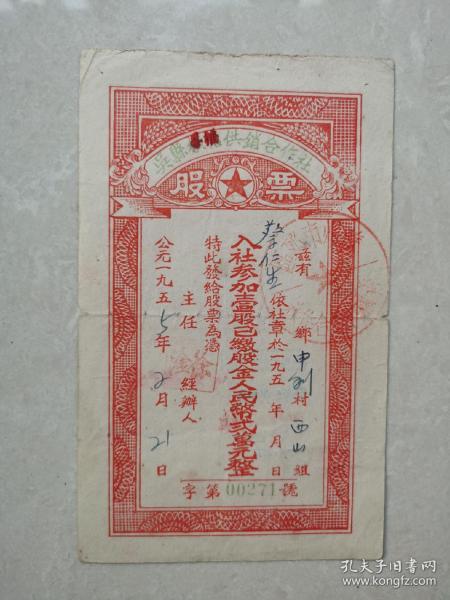 吳縣 供銷合作社
股票
茲有 鄉申 村西山組
蔡仁生 依社章於一九五 年 月 日
入社參加壹股已繳股金人民幣弍萬元整
特此發給股票為憑
主任 經辦人
公元一九五5年2月21日
字第00271號
孔夫子旧书网
www.kongfz.com